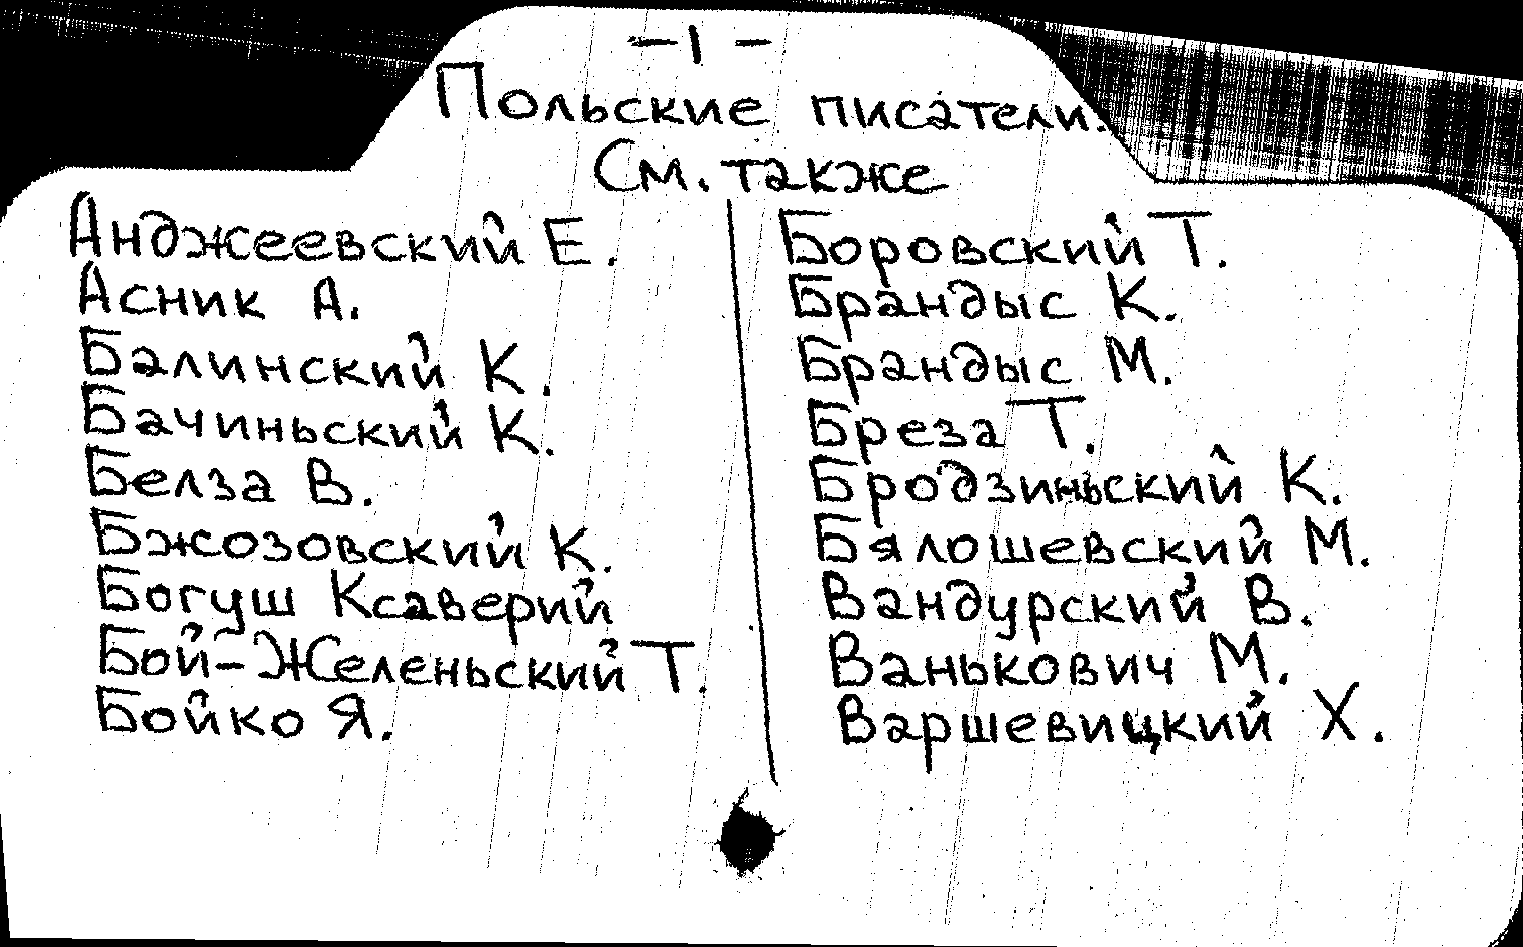 -1-
Польские писатели.
См. также
Анджеевский Е.
Асник А.
Балинский К.
Бачиньский К.
Белза В.
Бжозовский К.
Богуш Ксаверий
Бой-Желеньский Т.
Бойко Я.
Боровский Т.
Брандыс К.
Брандыс М.
Бреза Т.
Бродзиньский К.
Бялошевский М.
Вандурский В.
Ванькович М.
Варшевицкий Х.